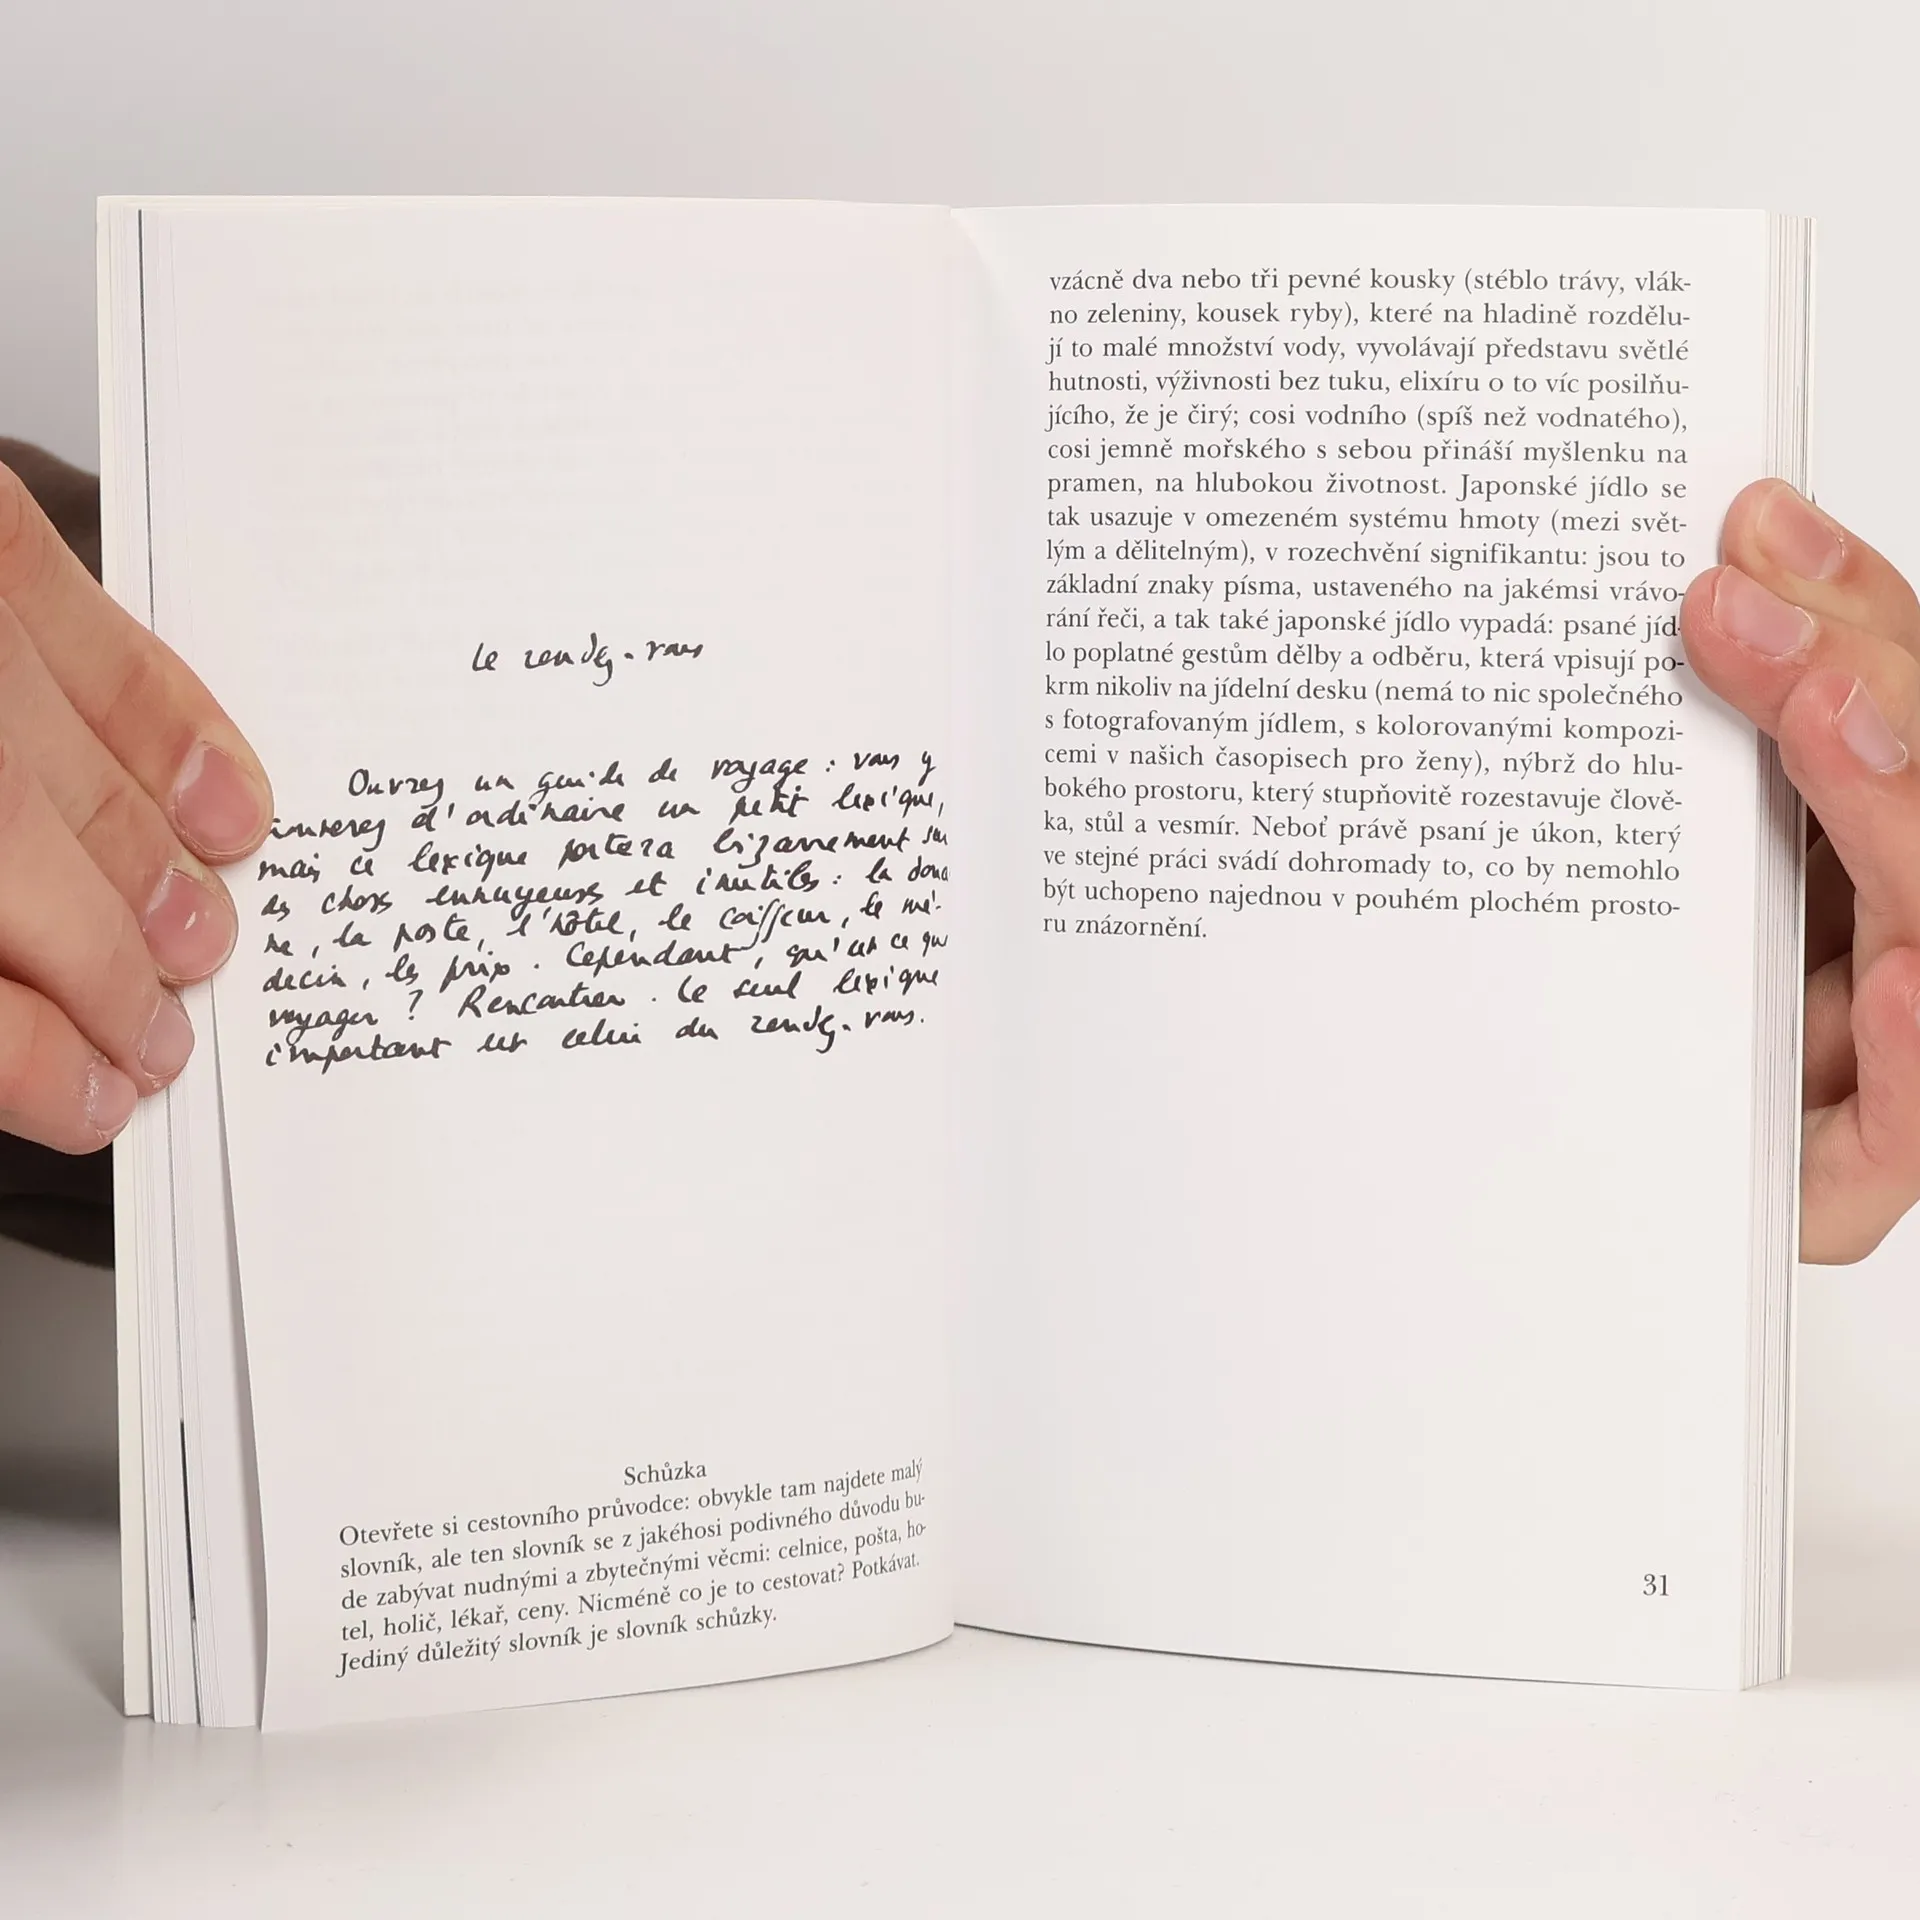 le rendez-vous
Ouvrez un guide de voyage : vous y
trouverez d'ordinaire un petit lexique,
mais ce lexique portera bizarrement sur
des choses ennuyeuses et inutiles : la doua
ne, la poste, l'hôtel, le coiffeur, le mé-
decin, les prix. Cependant, qu'est ce que
voyager ? Rencontrer. Le seul lexique
important est celui du rendez-vous.
Schůzka
Otevřete si cestovního průvodce: obvykle tam najdete malý
slovník, ale ten slovník se z jakéhosi podivného důvodu bu-
de zabývat nudnými a zbytečnými věcmi: celnice, pošta, ho-
tel, holič, lékař, ceny. Nicméně co je to cestovat? Potkávat.
Jediný důležitý slovník je slovník schůzky.
vzácně dva nebo tři pevné kousky (stéblo trávy, vlák-
no zeleniny, kousek ryby), které na hladině rozdělu-
jí to malé množství vody, vyvolávají představu světlé
hutnosti, výživnosti bez tuku, elixíru o to víc posilňu-
jícího, že je čirý; cosi vodního (spíš než vodnatého),
cosi jemně mořského s sebou přináší myšlenku na
pramen, na hlubokou životnost. Japonské jídlo se
tak usazuje v omezeném systému hmoty (mezi svět-
lým a dělitelným), v rozechvění signifikantu: jsou to
základní znaky písma, ustaveného na jakémsi vrávo-
rání řeči, a tak také japonské jídlo vypadá: psané jíd-
lo poplatné gestům dělby a odběru, která vpisují po-
krm nikoliv na jídelní desku (nemá to nic společného
s fotografovaným jídlem, s kolorovanými kompozi-
cemi v našich časopisech pro ženy), nýbrž do hlu-
bokého prostoru, který stupňovitě rozestavuje člově-
ka, stůl a vesmír. Neboť právě psaní je úkon, který
ve stejné práci svádí dohromady to, co by nemohlo
být uchopeno najednou v pouhém plochém prosto-
ru znázornění.
31